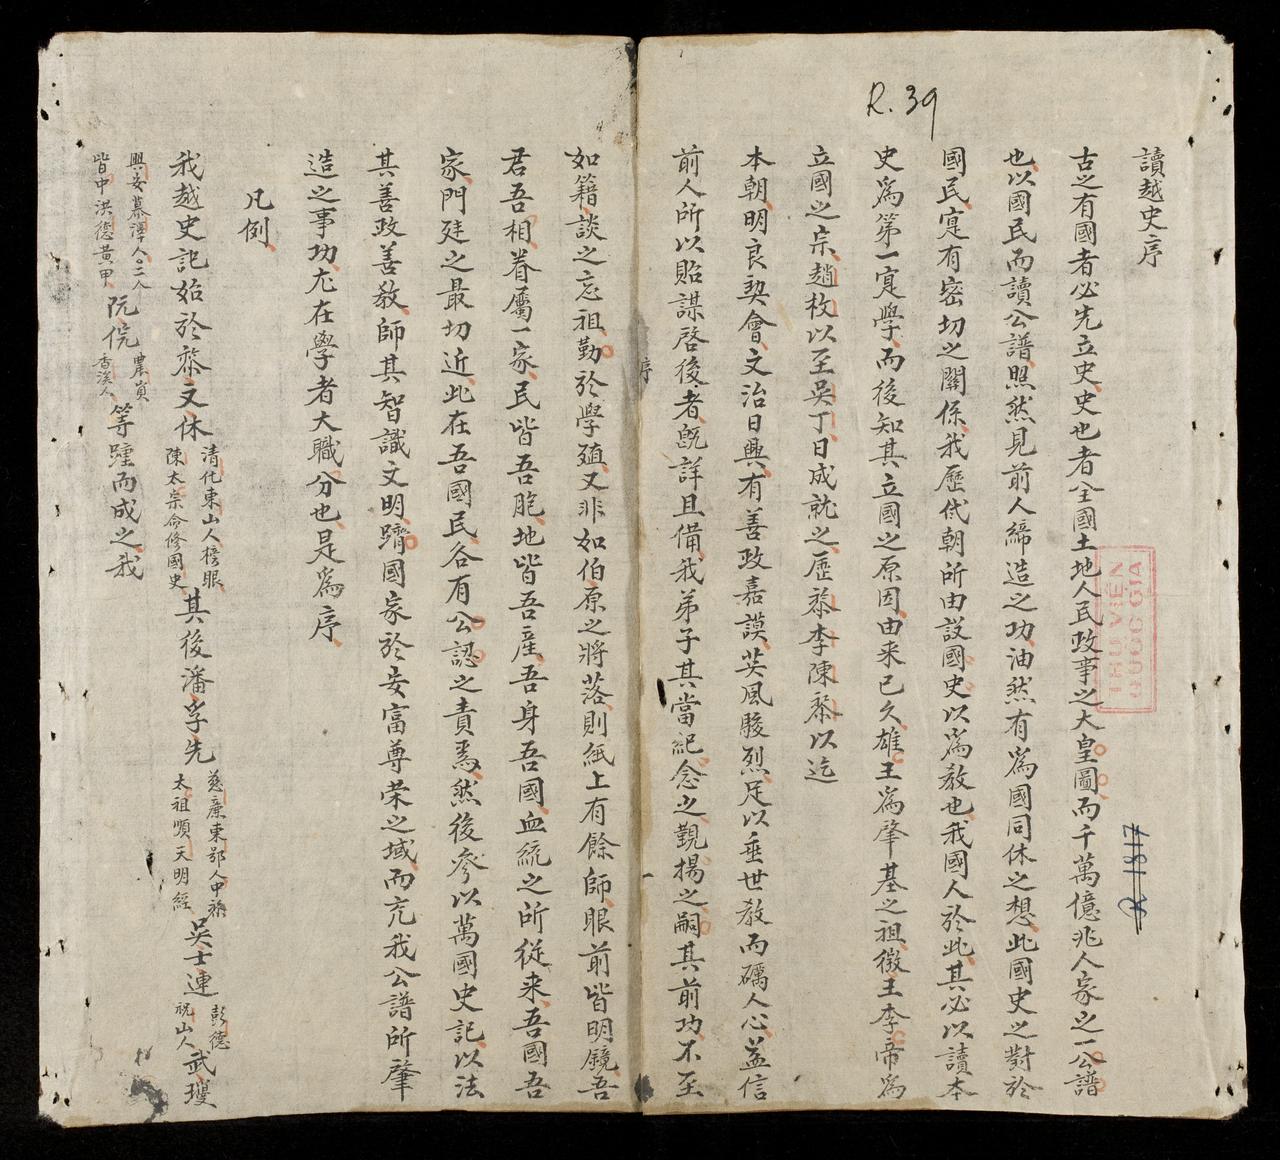 R.39
讀越史序
古之有國者必先立史史也者全國土地人民政事之大皇圖而千萬億兆人家之一公譜
也以國民而讀公譜照然見前人締造之功油然有爲國同休之想此國史之對於
國民寔有密切之關係我歷代朝所由設國史以爲教也我國人於此其必以讀本
史爲第一寔學而後知其立國之原因由来已久雄王爲肇基之祖徵王李帝爲
立國之宗趙枚以至吳丁日成就之歷黎李陳黎以迄
本朝明良契會文治日興有善政嘉謨英風駿烈足以垂世教而礪人心益信
前人所以貽謀啓後者旣詳且備我弟子其當紀念之覲揚之嗣其前功不至
序
如籍談之忘祖勤於學殖又非如伯原之將落則紙上有餘師眼前皆明鏡吾
君吾相眷屬一家民皆吾胞地皆吾産吾身吾國血統之所從来吾國吾
家門廷之最切近此在吾國民各有公認之責焉然後參以萬國史記以法
其善政善教師其智識文明躋國家於安富尊荣之域而亢我公譜所肇
造之事功尤在學者大職分也是爲序
凡例
我越史記始於黎文休清化東山人榜眼陳太宗命修國史其後潘孚先慈廉東鄂人中𥘉太祖順天明經吳士連彰德祝山人武瓊
興安慕澤人二人皆中洪德黄甲阮侃農貢香溪人等踵而成之我
THƯ VIỆN
QUỐC GIA
R 1817